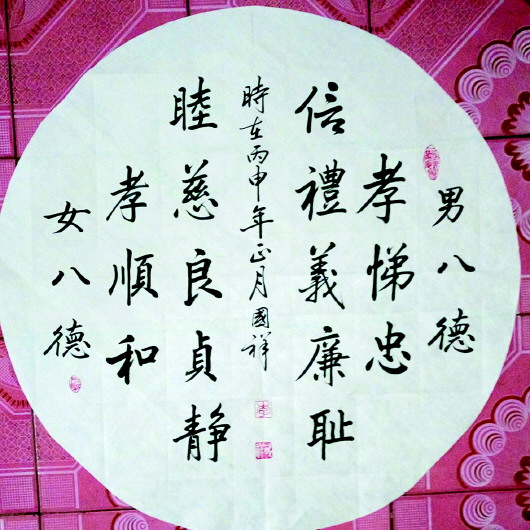 男八德
孝悌忠
信禮義廉耻
時在丙申年正月國祥
睦慈良貞静
孝順和
女八德